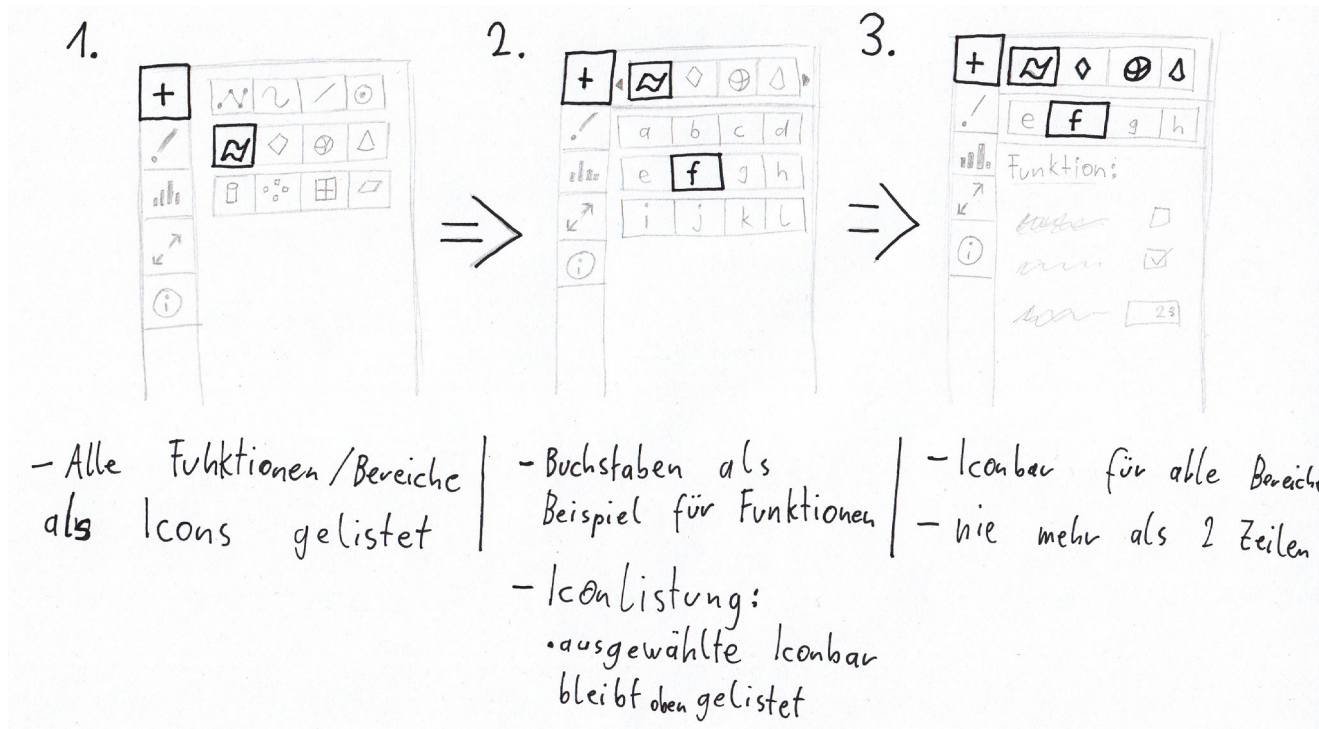 1.
2.
a b c d
e f g h
i j k l
3.
e f g h
Funktion:
23
- Alle Funktionen/Bereiche
als Icons gelistet
- Buchstaben als
Beispiel für Funktionen
- Iconlistung:
• ausgewählte Iconbar
bleibt oben gelistet
- Iconbar für alle Bereiche
- nie mehr als 2 Zeilen